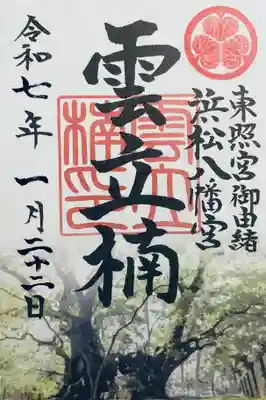 東照宮御由緒
浜松八幡宮
雲立楠
雲立楠之印
令和七年 一月二十二日